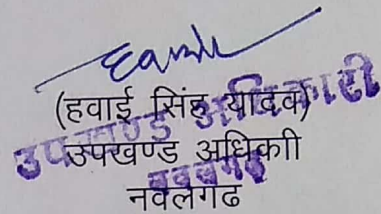 (हवाई सिंह यादव)
उपखण्ड अधिकारी
उपखण्ड अधिकाी
नवलगढ
नवलगढ